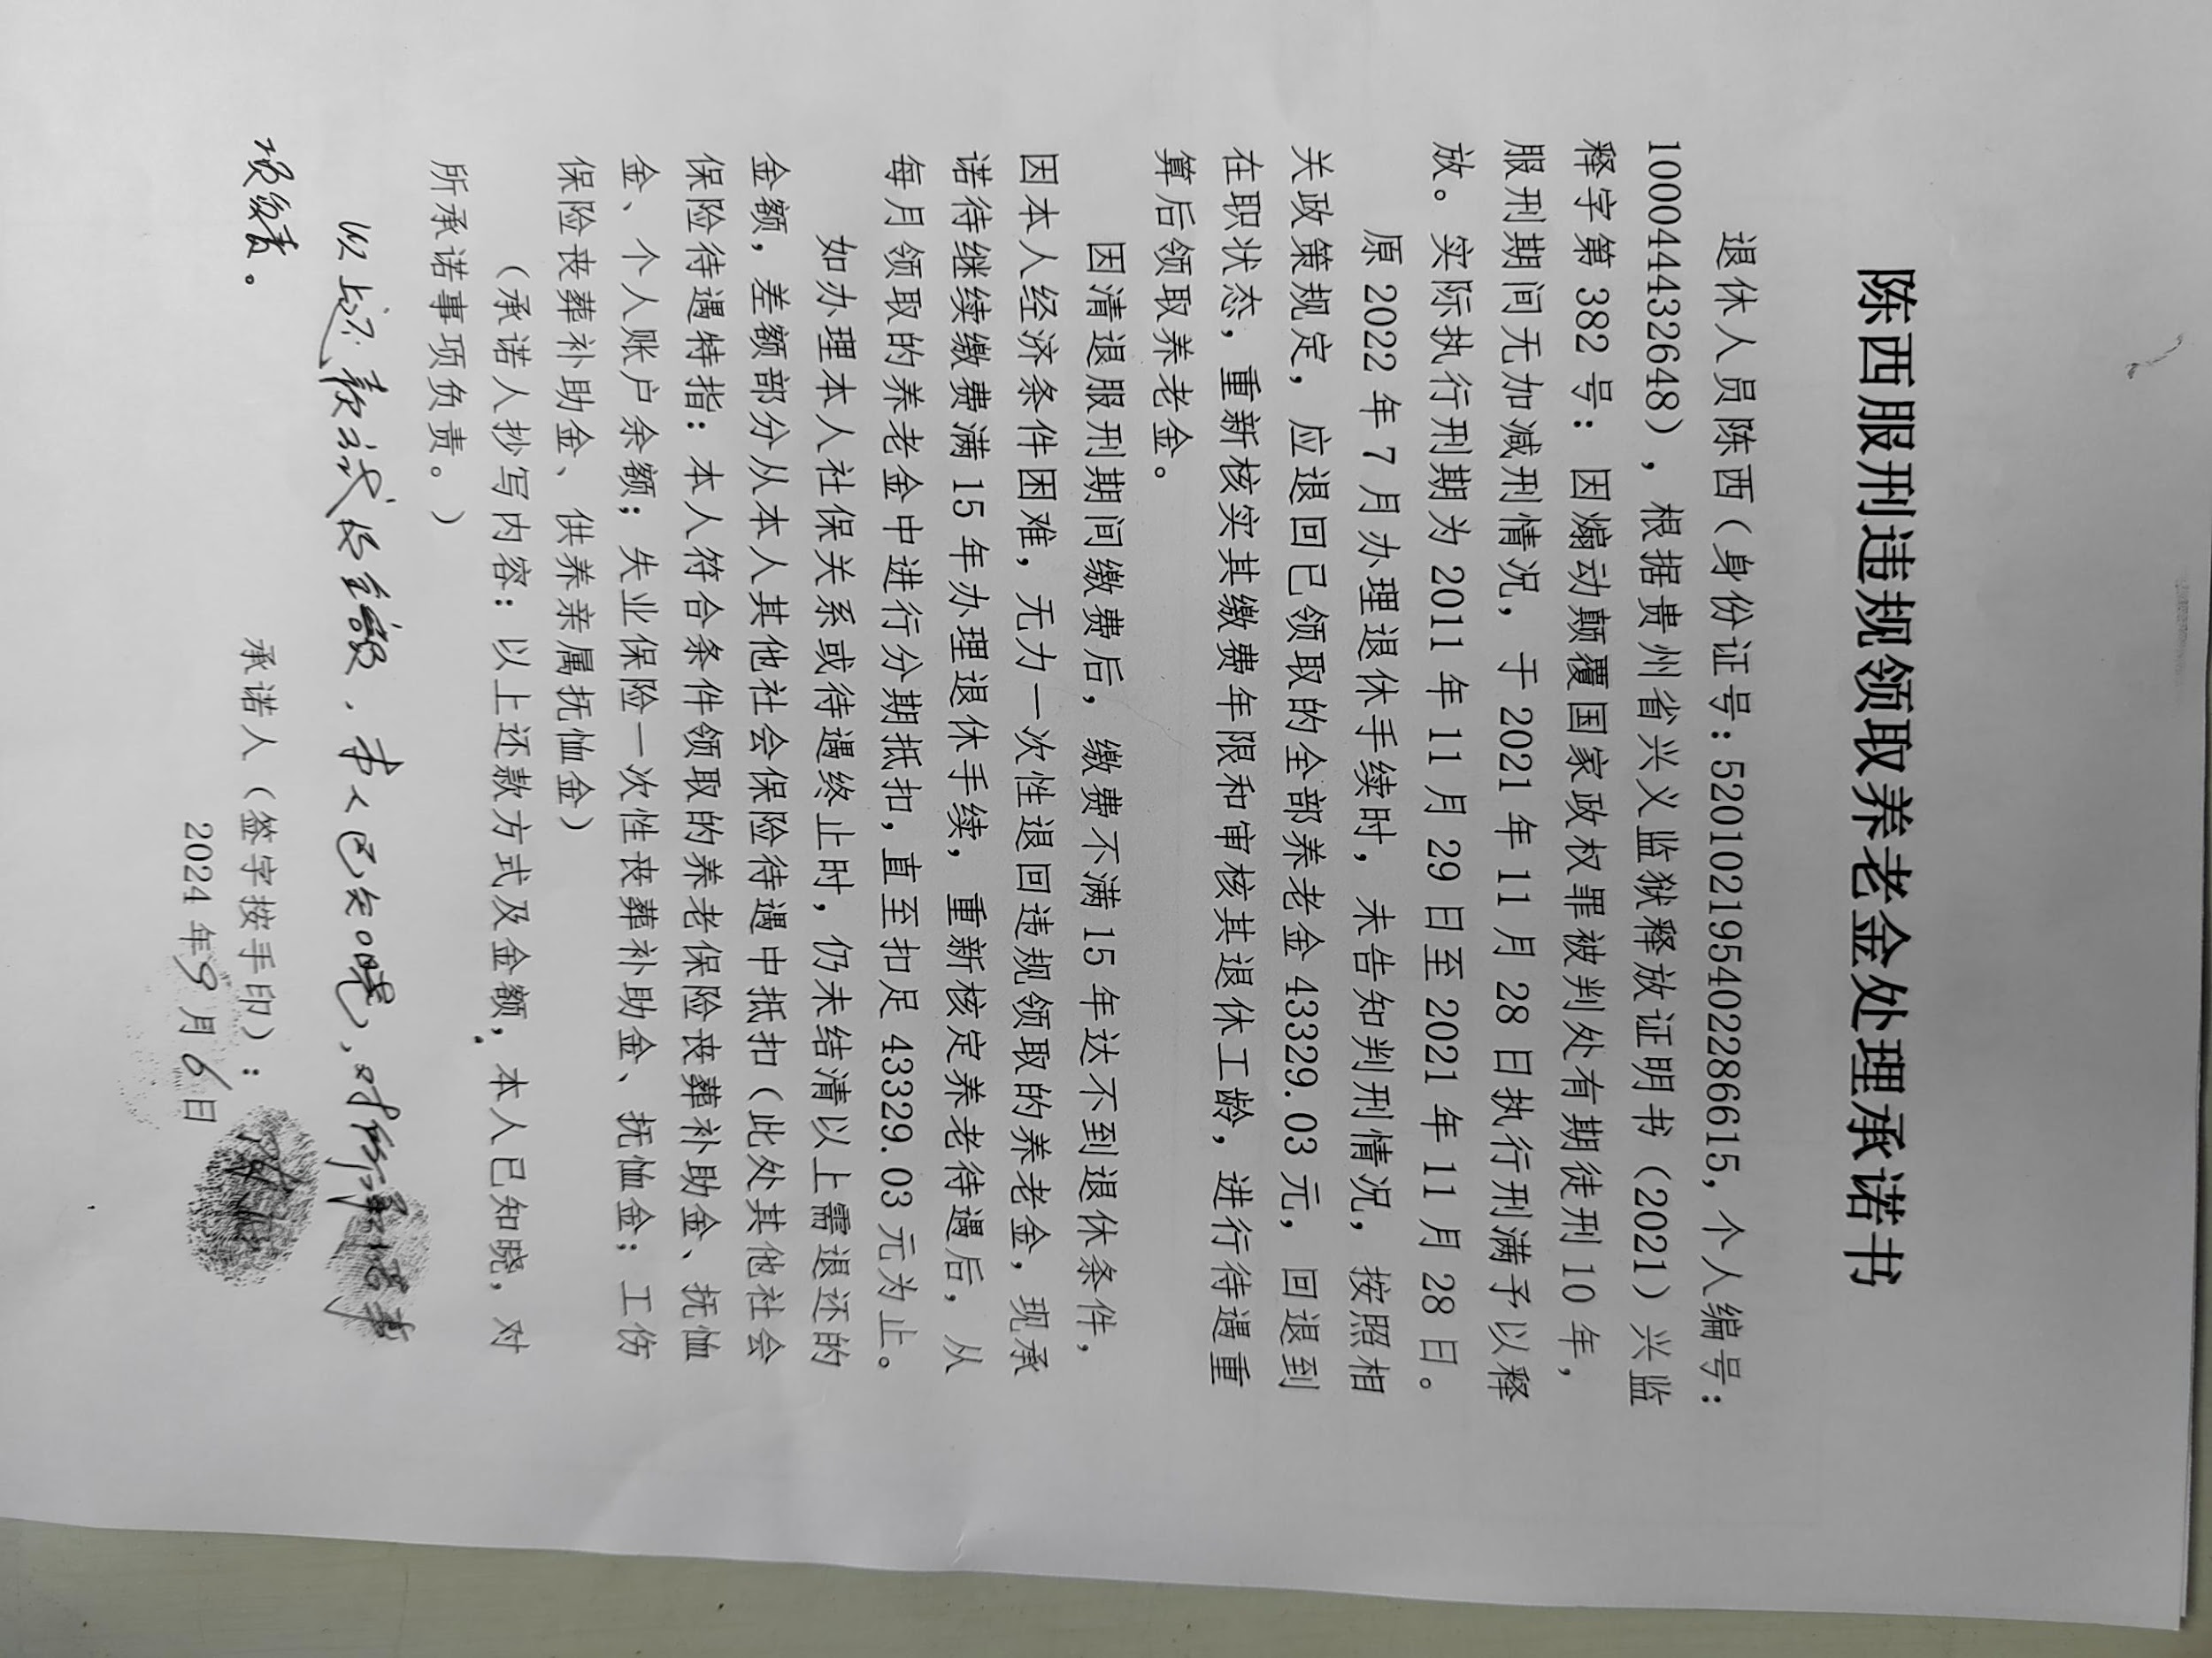 陈西服刑违规领取养老金处理承诺书
退休人员陈西（身份证号：520102195402286615，个人编号：
10004432648），根据贵州省兴义监狱释放证明书（2021）兴监
释字第 382 号：因煽动颠覆国家政权罪被判处有期徒刑 10 年，
服刑期间无加减刑情况，于 2021 年 11 月 28 日执行刑满予以释
放。实际执行刑期为 2011 年 11 月 29 日至 2021 年 11 月 28 日。
原 2022 年 7 月办理退休手续时，未告知判刑情况，按照相
关政策规定，应退回已领取的全部养老金 43329.03 元，回退到
在职状态，重新核实其缴费年限和审核其退休工龄，进行待遇重
算后领取养老金。
因清退服刑期间缴费后，缴费不满 15 年达不到退休条件，
因本人经济条件困难，无力一次性退回违规领取的养老金，现承
诺待继续缴费满 15 年办理退休手续，重新核定养老待遇后，从
每月领取的养老金中进行分期抵扣，直至扣足 43329.03 元为止。
如办理本人社保关系或待遇终止时，仍未结清以上需退还的
金额，差额部分从本人其他社会保险待遇中抵扣（此处其他社会
保险待遇特指：本人符合条件领取的养老保险丧葬补助金、抚恤
金、个人账户余额；失业保险一次性丧葬补助金、抚恤金；工伤
保险丧葬补助金、供养亲属抚恤金）
（承诺人抄写内容：以上还款方式及金额，本人已知晓，对
所承诺事项负责。）
以上还款方式及金额，本人已知晓，对所承诺事
项负责。
承诺人（签字按手印）：陈西
2024 年 9 月 6 日